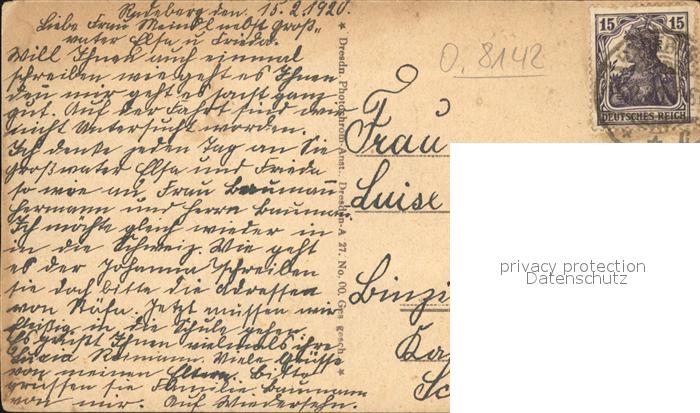 Radeberg den. 15.2.1920.
Liebe Frau Meindl nebst Groß„
vater Elsa u Frieda.
Will Ihnen auch einmal
schreiben wie geht es Ihnen
den mir geht es sonst ganz
gut. Auf der Fahrt sind wir
nicht Untersucht worden.
Ich denke jeden Tag an Sie
Großvater Elsa und Frieda
so wie an Frau Baumann
Hermann und Herrn Baumann
Ich möchte gleich wieder in
in die Schweiz. Wie geht
es der Johanna schreiben
sie doch bitte die Adressen
von Stäfa. Jetzt müssen wir
fleißig in die Schule gehen.
Es grüßt Ihnen vielmals ihre
Lucia Reimann. Viele Grüsse
von meinen Eltern. Bitte
grüssen sie Familie Baumann
von mir. Auf Wiedersehn.
Dresdn. Photochrom-Anst. Dresden-A 27. No. 00 Ges. gesch.
O. 8142
15 15
DEUTSCHES REICH
Frau
Luise
Binzi
Ka
Sc
privacy protection
Datenschutz